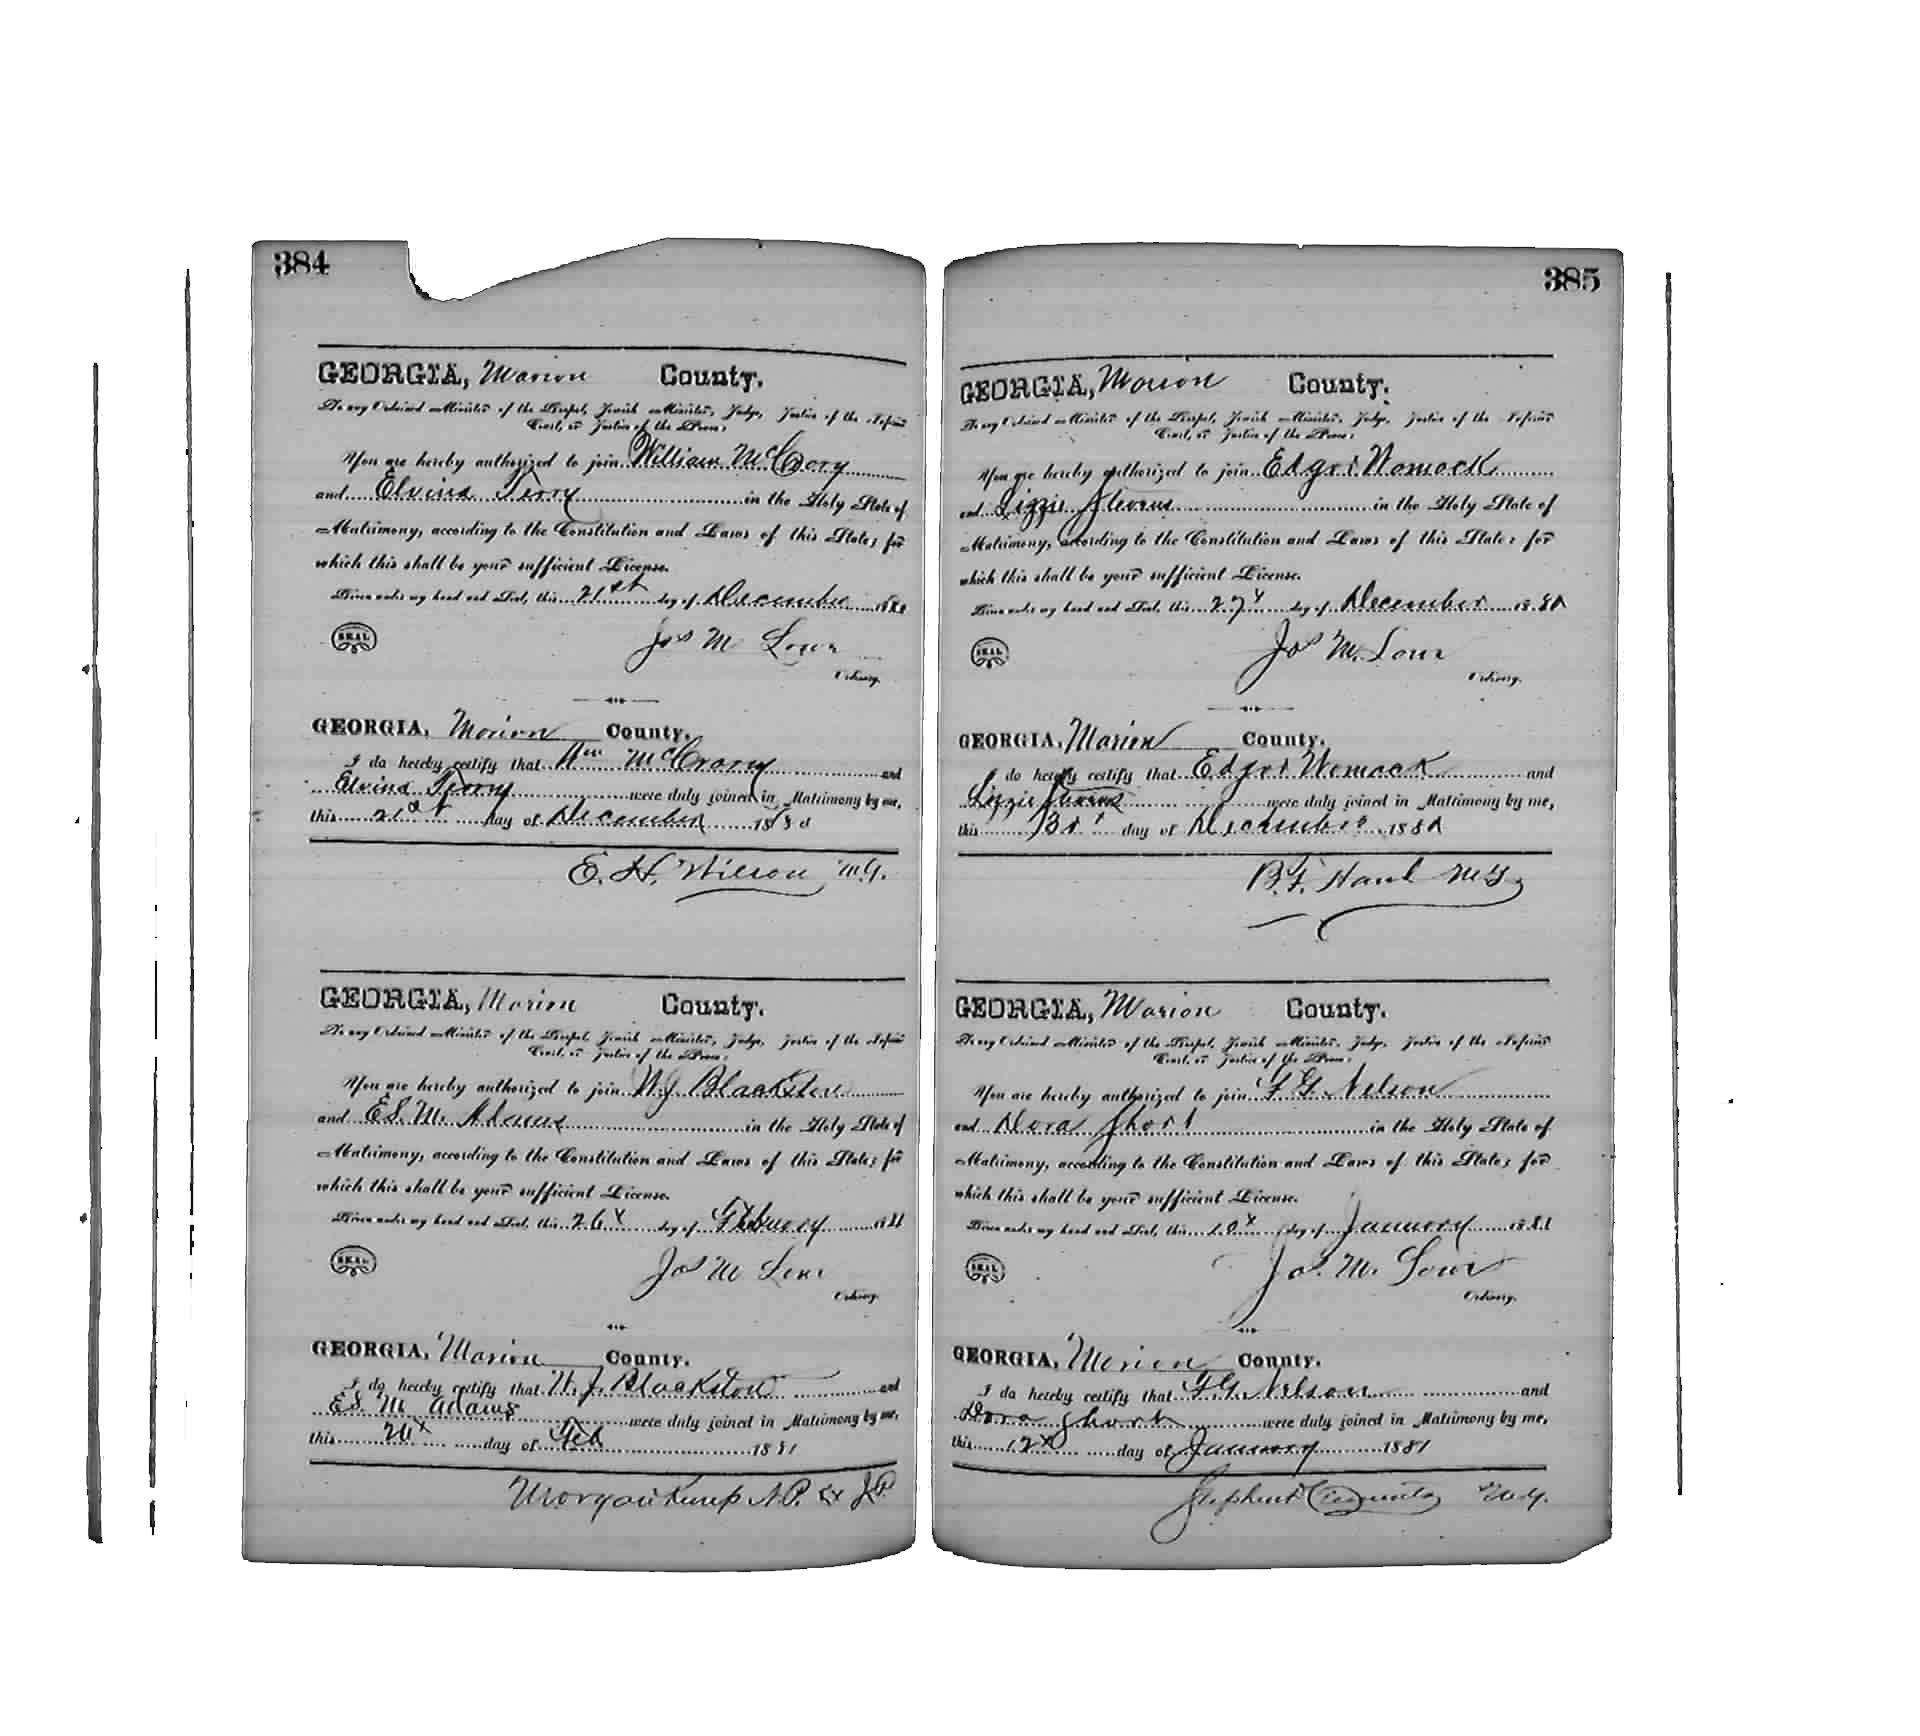 384
GEORGIA, Marion County.
To any Ordained Minister of the Gospel, Jewish Minister, Judge, Justice of the Inferior
Court, or Justice of the Peace:
You are hereby authorized to join William McCrory
and Elvina Terry in the Holy State of
Matrimony, according to the Constitution and Laws of this State; for
which this shall be your sufficient License.
Given under my hand and Seal, this 21st day of December 1880
SEAL
Jos M Lowe
Ordinary.
GEORGIA, Marion County.
I do hereby certify that Wm McCrary and
Elvina Terry were duly joined in Matrimony by me,
this 21st day of December 1880
E. H. Wilson M.G.
GEORGIA, Marion County.
To any Ordained Minister of the Gospel, Jewish Minister, Judge, Justice of the Inferior
Court, or Justice of the Peace:
You are hereby authorized to join W J Blackston
and E S. M. Adams in the Holy State of
Matrimony, according to the Constitution and Laws of this State; for
which this shall be your sufficient License.
Given under my hand and Seal, this 26 day of February 1881
SEAL
Jos M Lowe
Ordinary.
GEORGIA, Marion County.
I do hereby certify that W. J. Blackston and
E S. M Adams were duly joined in Matrimony by me,
this day of Feb 1881
Morgan Kemp N.P. Ex J.P.
385
GEORGIA, Marion County.
To any Ordained Minister of the Gospel, Jewish Minister, Judge, Justice of the Inferior
Court, or Justice of the Peace:
You are hereby authorized to join Edgar Womack
and Lizzie Stevens in the Holy State of
Matrimony, according to the Constitution and Laws of this State; for
which this shall be your sufficient License.
Given under my hand and Seal, this 27 day of December 1880
SEAL
Jos M. Lowe
Ordinary.
GEORGIA, Marion County.
I do hereby certify that Edgar Womack and
Lizzie Stevens were duly joined in Matrimony by me,
this day of December 1880
B. F. M.G.
GEORGIA, Marion County.
To any Ordained Minister of the Gospel, Jewish Minister, Judge, Justice of the Inferior
Court, or Justice of the Peace:
You are hereby authorized to join G. G. Nelson
and Dora Short in the Holy State of
Matrimony, according to the Constitution and Laws of this State; for
which this shall be your sufficient License.
Given under my hand and Seal, this 10 day of January 1881
SEAL
Jos. M. Lowe
Ordinary.
GEORGIA, Marion County.
I do hereby certify that G. G. Nelson and
Dora Short were duly joined in Matrimony by me,
this 12 day of January 1881
Stephen M.G.